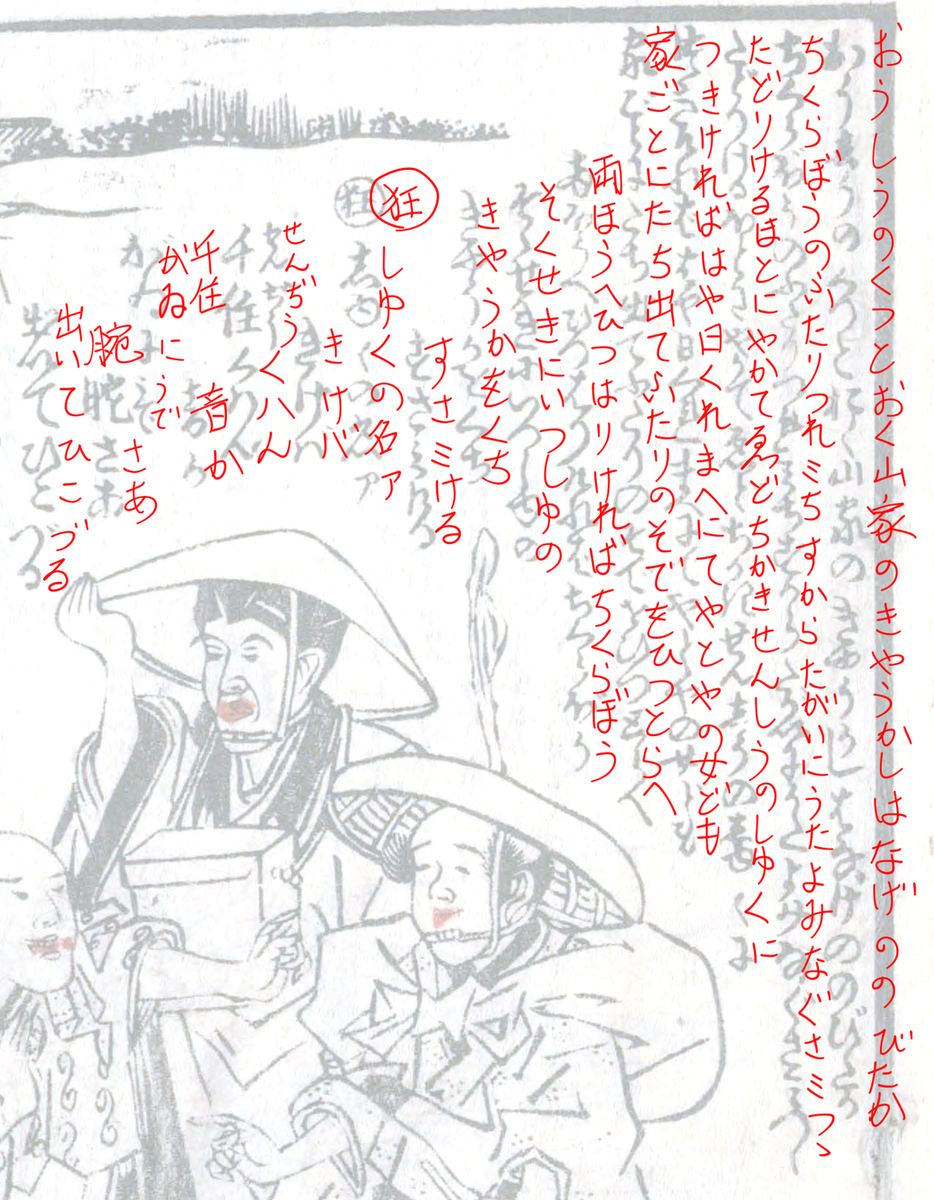 おうしうのくつとおく山家のきやうかしはなげののびたか
ちくらぼうのふたりつれミちすからたがいにうたよみなぐさミつゝ
たどりけるほとにやかてゑどちかきせんしうのしゆくに
つきければはや日くれまへにてやとやの女ども
家ごとにたち出てふたりのそでをひつとらへ
両ほうへひつはりければちくらぼう
そくせきにいつしゆの
きやうかをくち
すさミける
狂 しゆくの名ァ
きけバ
せんぢうくハん
千住 音か
がゐにうで
腕 さあ
出いてひこづる